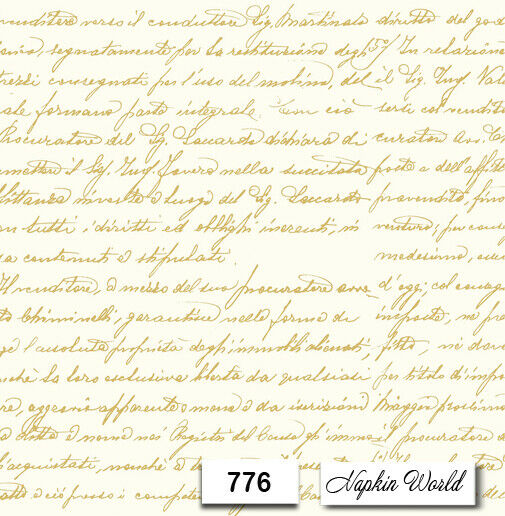 venditore verso il conduttore Sig. Martinato diritto del god
segnatamente per la restituzione degli In relazione
consegnati per l'uso del molino, del il Sig. Ing. Vale
formano parte integrale. Con ciò terzi col vendito
Procuratore del Sg. Saccardo dichiara di curatore avv.
mettere il Sig. Ing. nella succitata poste a dell'affit
investe a luogo del Sig. Saccardo provendito, fino
tutti i diritti ed obblighi inerenti, in venturo; per conse
contenuti e stipulati. medesimo,
Il venditore, a mezzo del suo procuratore avv. d'oggi; col
Chiminelli, garantisce nelle forme di imposte, ne
l'assoluta proprietà degli immobili alienati, fitto, ne
la loro esclusiva libertà da qualsiasi per titolo di impo
aggravio apparente o meno e da iscrizioni Maggior prossimo
o meno nei Registri del Censo gli immo il procuratore
acquistati, nonchè a
ciò possa competere
776 Napkin World